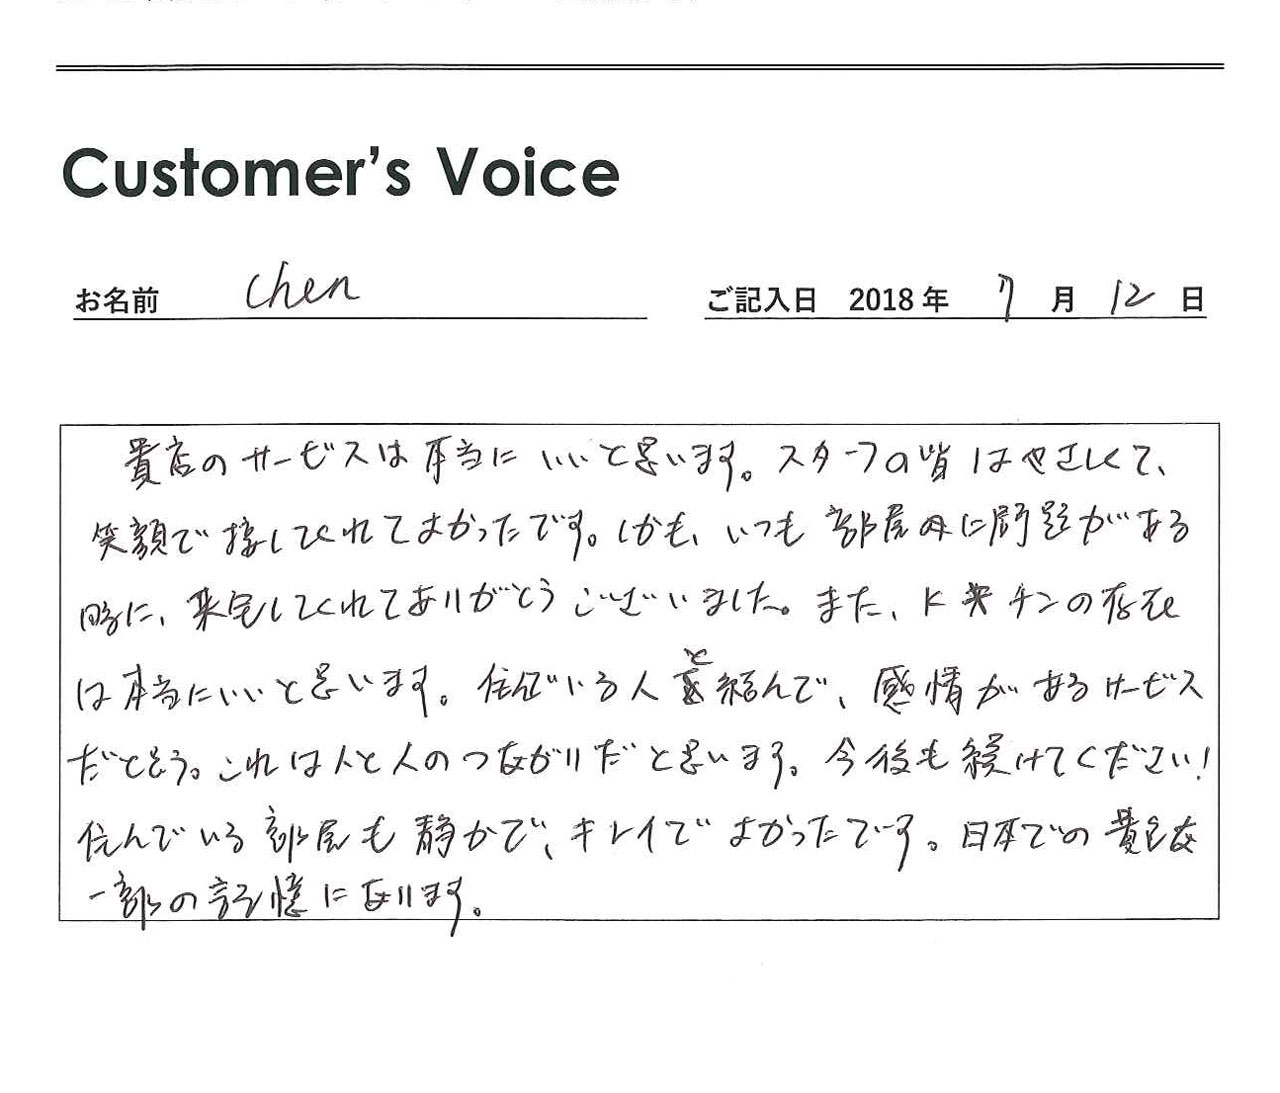 Customer's Voice
お名前 Chen
ご記入日 2018年 7月 12日
貴店のサービスは本当にいいと思います。スターフの皆はやさしくて、
笑顔で接してくれてよかったです。しかも、いつも部屋内に問題がある
時に、来宅してくれてありがとうございました。また、K チンの存在
は本当にいいと思います。住んでいる人と結んで、感情があるサービス
だと思う。これは人と人のつながりだと思います。今後も続けてください!
住んでいる部屋も静かで、キレイでよかったです。日本での貴重な
一部の記憶になります。